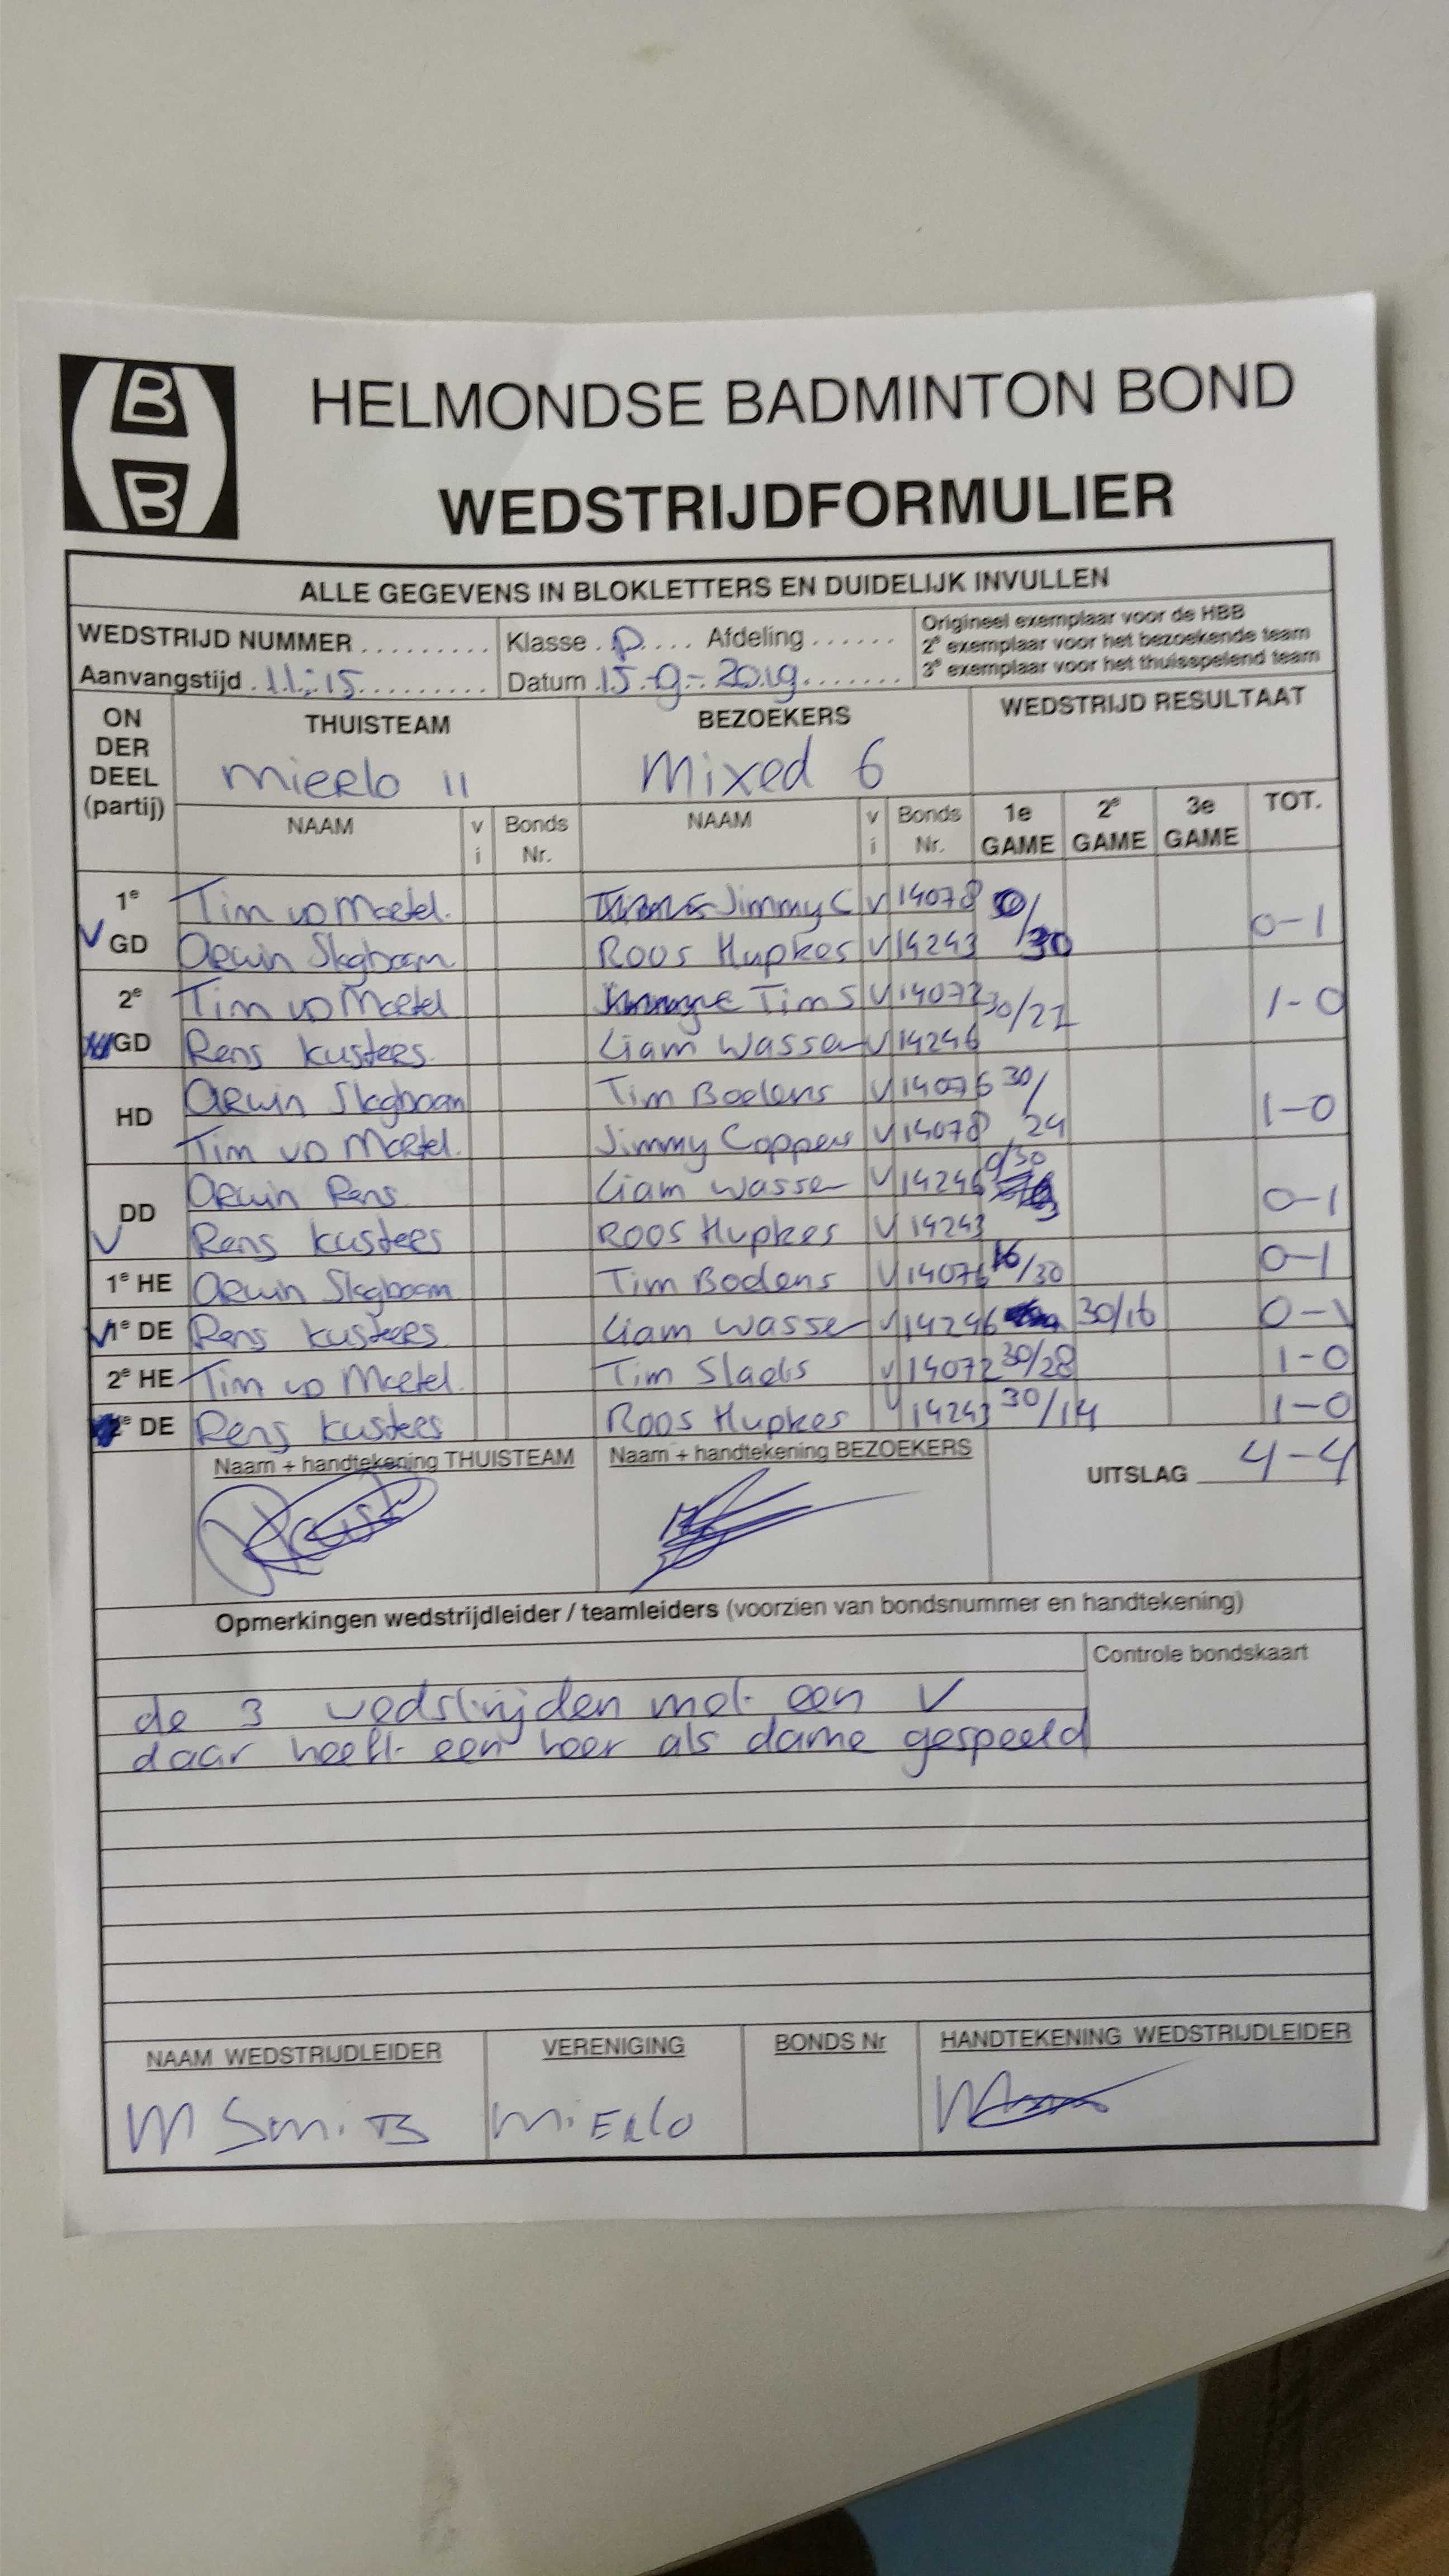 B
B
HELMONDSE BADMINTON BOND
WEDSTRIJDFORMULIER
ALLE GEGEVENS IN BLOKLETTERS EN DUIDELIJK INVULLEN
WEDSTRIJD NUMMER ......... Klasse . P .... Afdeling ...... Origineel exemplaar voor de HBB
2e exemplaar voor het bezoekende team
Aanvangstijd .11:15......... Datum .15-9-2019....... 3e exemplaar voor het thuisspelend team
ON DER DEEL (partij) THUISTEAM BEZOEKERS WEDSTRIJD RESULTAAT
Mierlo 11 Mixed 6
NAAM vi Bonds Nr. NAAM vi Bonds Nr. 1e GAME 2e GAME 3e GAME TOT.
1e Tim vd Moetel. Jimmy C V 14078 0/
V GD Arwin Slegboom Roos Hupkes V 14243 30 0-1
2e Tim vd Moetel Tim S V 14072 30/21 1-0
GD Rens Kusters. Liam Wasser V 14246
HD Arwin Slegboom Tim Boelens V 14076 30/ 1-0
Tim vd Moetel. Jimmy Coppens V 14078 24
DD Arwin Rens Liam Wasser V 14246 0/30 0-1
V Rens Kusters Roos Hupkes V 14243
1e HE Arwin Slegboom Tim Boelens V 14076 16/30 0-1
V 1e DE Rens Kusters Liam Wasser V 14246 30/16 0-1
2e HE Tim vd Moetel. Tim Slaets V 14072 30/28 1-0
2e DE Rens Kusters Roos Hupkes V 14243 30/14 1-0
Naam + handtekening THUISTEAM Naam + handtekening BEZOEKERS UITSLAG 4-4
Opmerkingen wedstrijdleider / teamleiders (voorzien van bondsnummer en handtekening)
Controle bondskaart
de 3 wedstrijden met een V
daar heeft een heer als dame gespeeld
NAAM WEDSTRIJDLEIDER VERENIGING BONDS Nr HANDTEKENING WEDSTRIJDLEIDER
M Smits MiERlo